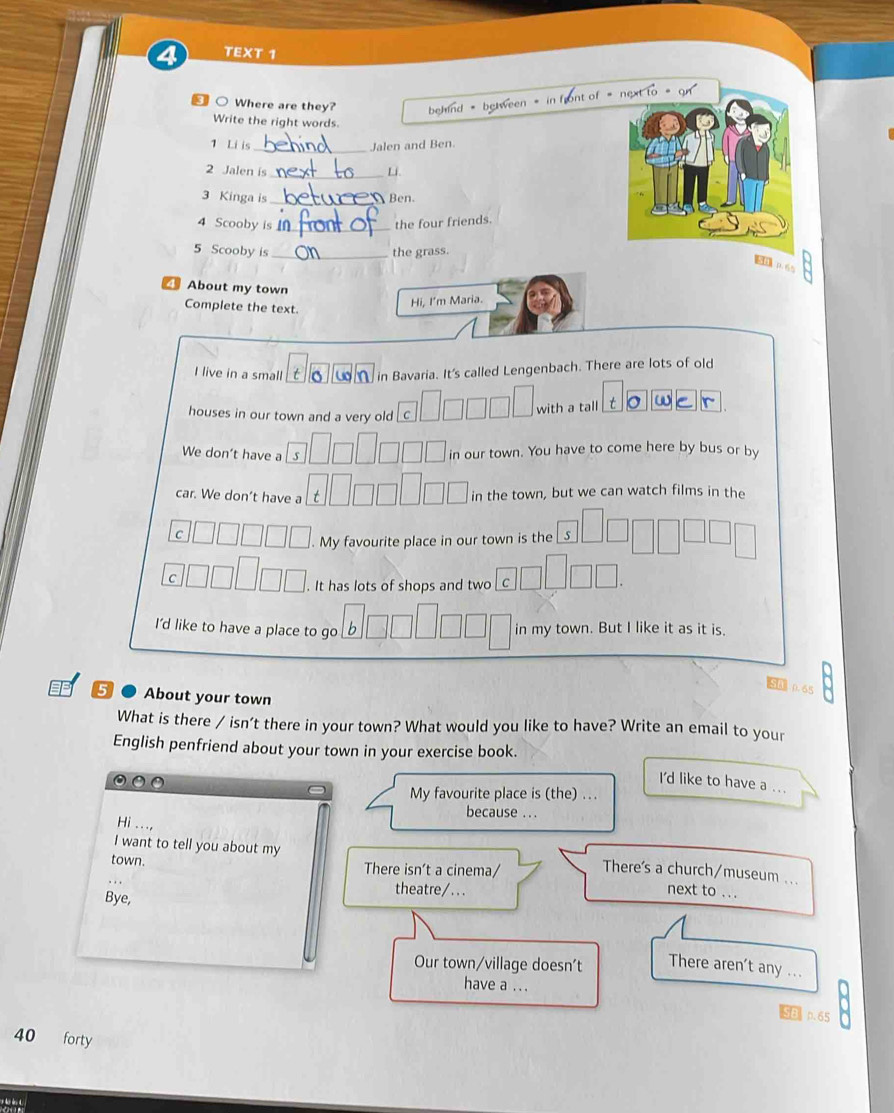 4 TEXT 1
3 Where are they?
Write the right words.
behind • between • in front of • next to • on
1 Li is behind Jalen and Ben.
2 Jalen is next to Li.
3 Kinga is between Ben.
4 Scooby is in front of the four friends.
5 Scooby is on the grass.
SB p. 65
4 About my town
Complete the text.
Hi, I'm Maria.
I live in a small town in Bavaria. It's called Lengenbach. There are lots of old
houses in our town and a very old c with a tall tower.
We don't have a s in our town. You have to come here by bus or by
car. We don't have a t in the town, but we can watch films in the
c . My favourite place in our town is the s
c . It has lots of shops and two c .
I'd like to have a place to go b in my town. But I like it as it is.
SB p. 65
5 About your town
What is there / isn't there in your town? What would you like to have? Write an email to your
English penfriend about your town in your exercise book.
Hi ...,
I want to tell you about my
town.
...
Bye,
My favourite place is (the) ...
because ...
I'd like to have a ...
There isn't a cinema/
theatre/...
There's a church/museum ...
next to ...
Our town/village doesn't
have a ...
There aren't any ...
SB p. 65
40 forty